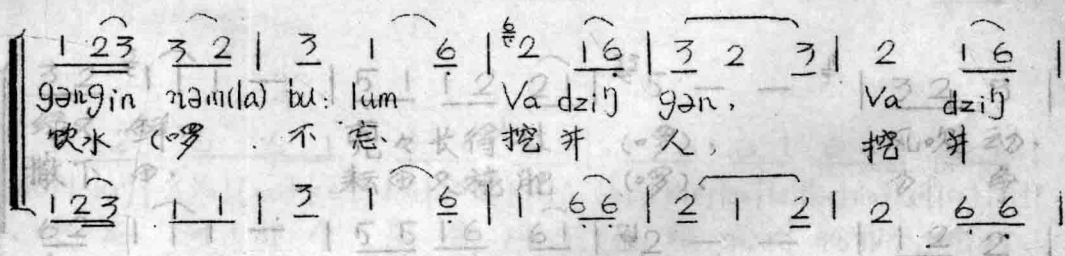 1 2 3 3 2 | 3 1 6 | 6 2 1 6 | 3 2 3 | 2 1 6 |
gəngin nəm(la) bu: lum Va dziŋ gən, Va dziŋ
饮水 (啰 不忘 挖井 (啰) 人, 挖井
1 2 3 1 1 | 3 1 6 | 1 6 6 | 2 1 2 | 2 6 6 |